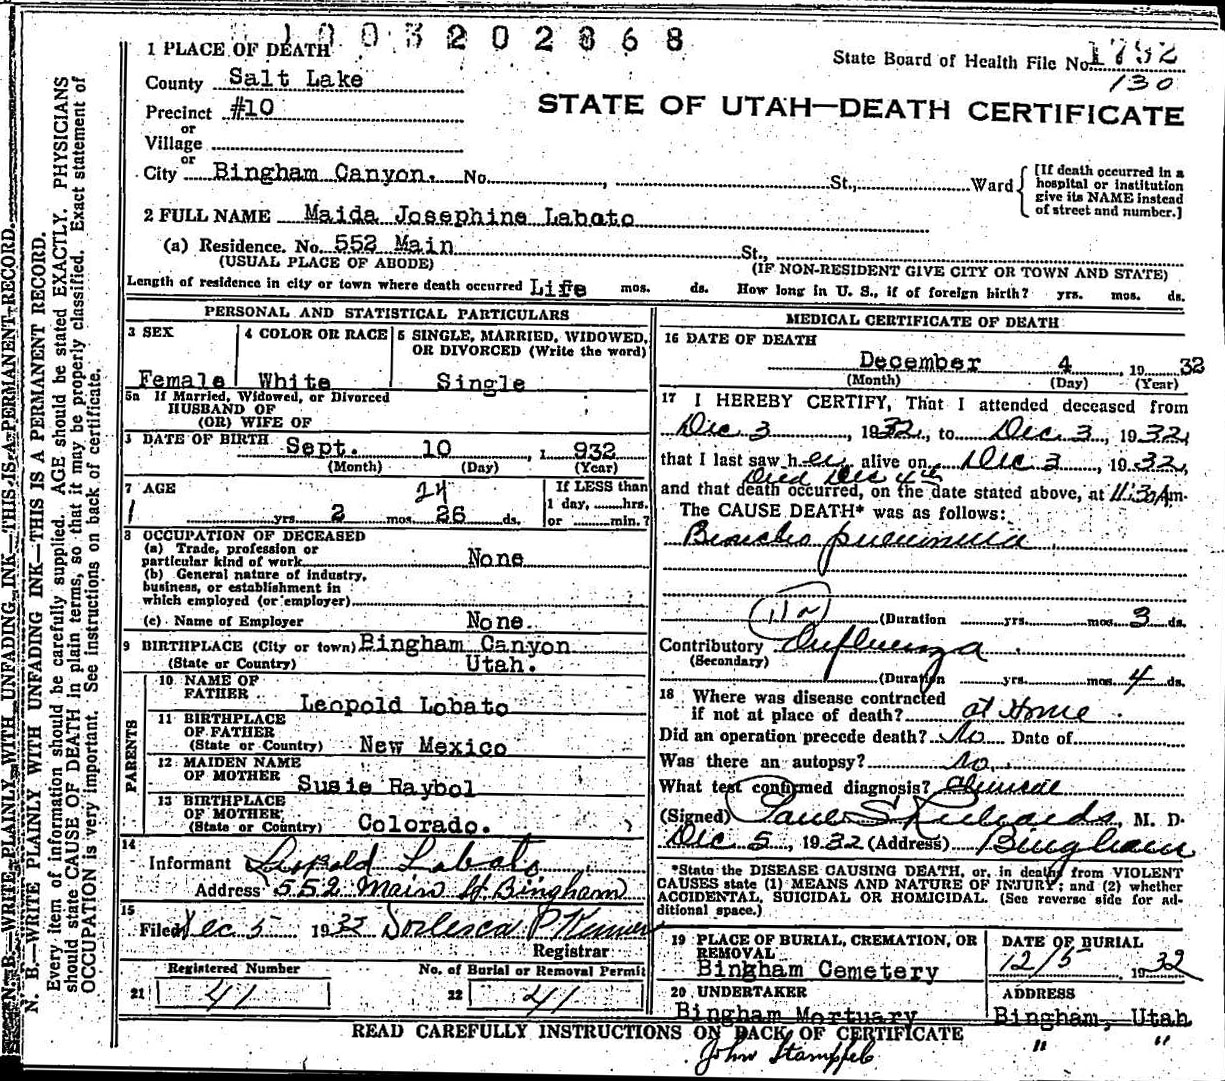 1003202868
1 PLACE OF DEATH
State Board of Health File No. 1792
130
County Salt Lake
Precinct #10
STATE OF UTAH—DEATH CERTIFICATE
or
Village
or
City Bingham Canyon. No. , St., Ward
[If death occurred in a hospital or institution give its NAME instead of street and number.]
2 FULL NAME Maida Josephine Labato
(a) Residence. No. 552 Main St.,
(USUAL PLACE OF ABODE) (IF NON-RESIDENT GIVE CITY OR TOWN AND STATE)
Length of residence in city or town where death occurred Life mos. ds. How long in U. S., if of foreign birth? yrs. mos. ds.
PERSONAL AND STATISTICAL PARTICULARS
3 SEX 4 COLOR OR RACE 5 SINGLE, MARRIED, WIDOWED,
OR DIVORCED (Write the word)
Female White Single
5a If Married, Widowed, or Divorced
HUSBAND OF
(OR) WIFE OF
DATE OF BIRTH Sept. 10 , 1 932
(Month) (Day) (Year)
7 AGE 24 If LESS than
1 day, hrs.
yrs. 2 mos. 26 ds. or min.?
8 OCCUPATION OF DECEASED
(a) Trade, profession or
particular kind of work None
(b) General nature of industry,
business, or establishment in
which employed (or employer)
(c) Name of Employer None.
9 BIRTHPLACE (City or town) Bingham Canyon
(State or Country) Utah.
PARENTS
10 NAME OF
FATHER Leopold Lobato
11 BIRTHPLACE
OF FATHER
(State or Country) New Mexico
12 MAIDEN NAME
OF MOTHER Susie Raybol
13 BIRTHPLACE
OF MOTHER
(State or Country) Colorado.
14
Informant Leopold Labato
Address 552 Main St. Bingham
15
Filed Dec 5 1932
Registrar
Registered Number No. of Burial or Removal Permit
21 41 22 41
MEDICAL CERTIFICATE OF DEATH
16 DATE OF DEATH
December 4 , 19 32
(Month) (Day) (Year)
17 I HEREBY CERTIFY, That I attended deceased from
Dec 3 , 1932, to Dec. 3 , 1932,
that I last saw her alive on Dec 3 , 1932,
Died Dec 4th
and that death occurred, on the date stated above, at 11:30 Am.
The CAUSE DEATH* was as follows:
Broncho pneumonia
11a (Duration yrs. mos. 3 ds.
Contributory Influenza
(Secondary)
(Duration yrs. mos. 4 ds.
18 Where was disease contracted
if not at place of death? at Home
Did an operation precede death? No Date of
Was there an autopsy? No.
What test confirmed diagnosis? Clinical
(Signed) Paul S Richards, M. D.
Dec 5, 1932 (Address) Bingham
*State the DISEASE CAUSING DEATH, or, in deaths from VIOLENT
CAUSES state (1) MEANS AND NATURE OF INJURY; and (2) whether
ACCIDENTAL, SUICIDAL OR HOMICIDAL. (See reverse side for ad-
ditional space.)
19 PLACE OF BURIAL, CREMATION, OR
REMOVAL
Bingham Cemetery
DATE OF BURIAL
12/5 1932
20 UNDERTAKER ADDRESS
Bingham Mortuary Bingham, Utah
READ CAREFULLY INSTRUCTIONS ON BACK OF CERTIFICATE
John Stampfel " "
N. B.—WRITE PLAINLY WITH UNFADING INK—THIS IS A PERMANENT RECORD.
N. B.—WRITE PLAINLY WITH UNFADING INK—THIS IS A PERMANENT RECORD.
Every item of information should be carefully supplied. AGE should be stated EXACTLY. PHYSICIANS
should state CAUSE OF DEATH in plain terms, so that it may be properly classified. Exact statement of
OCCUPATION is very important. See instructions on back of certificate.